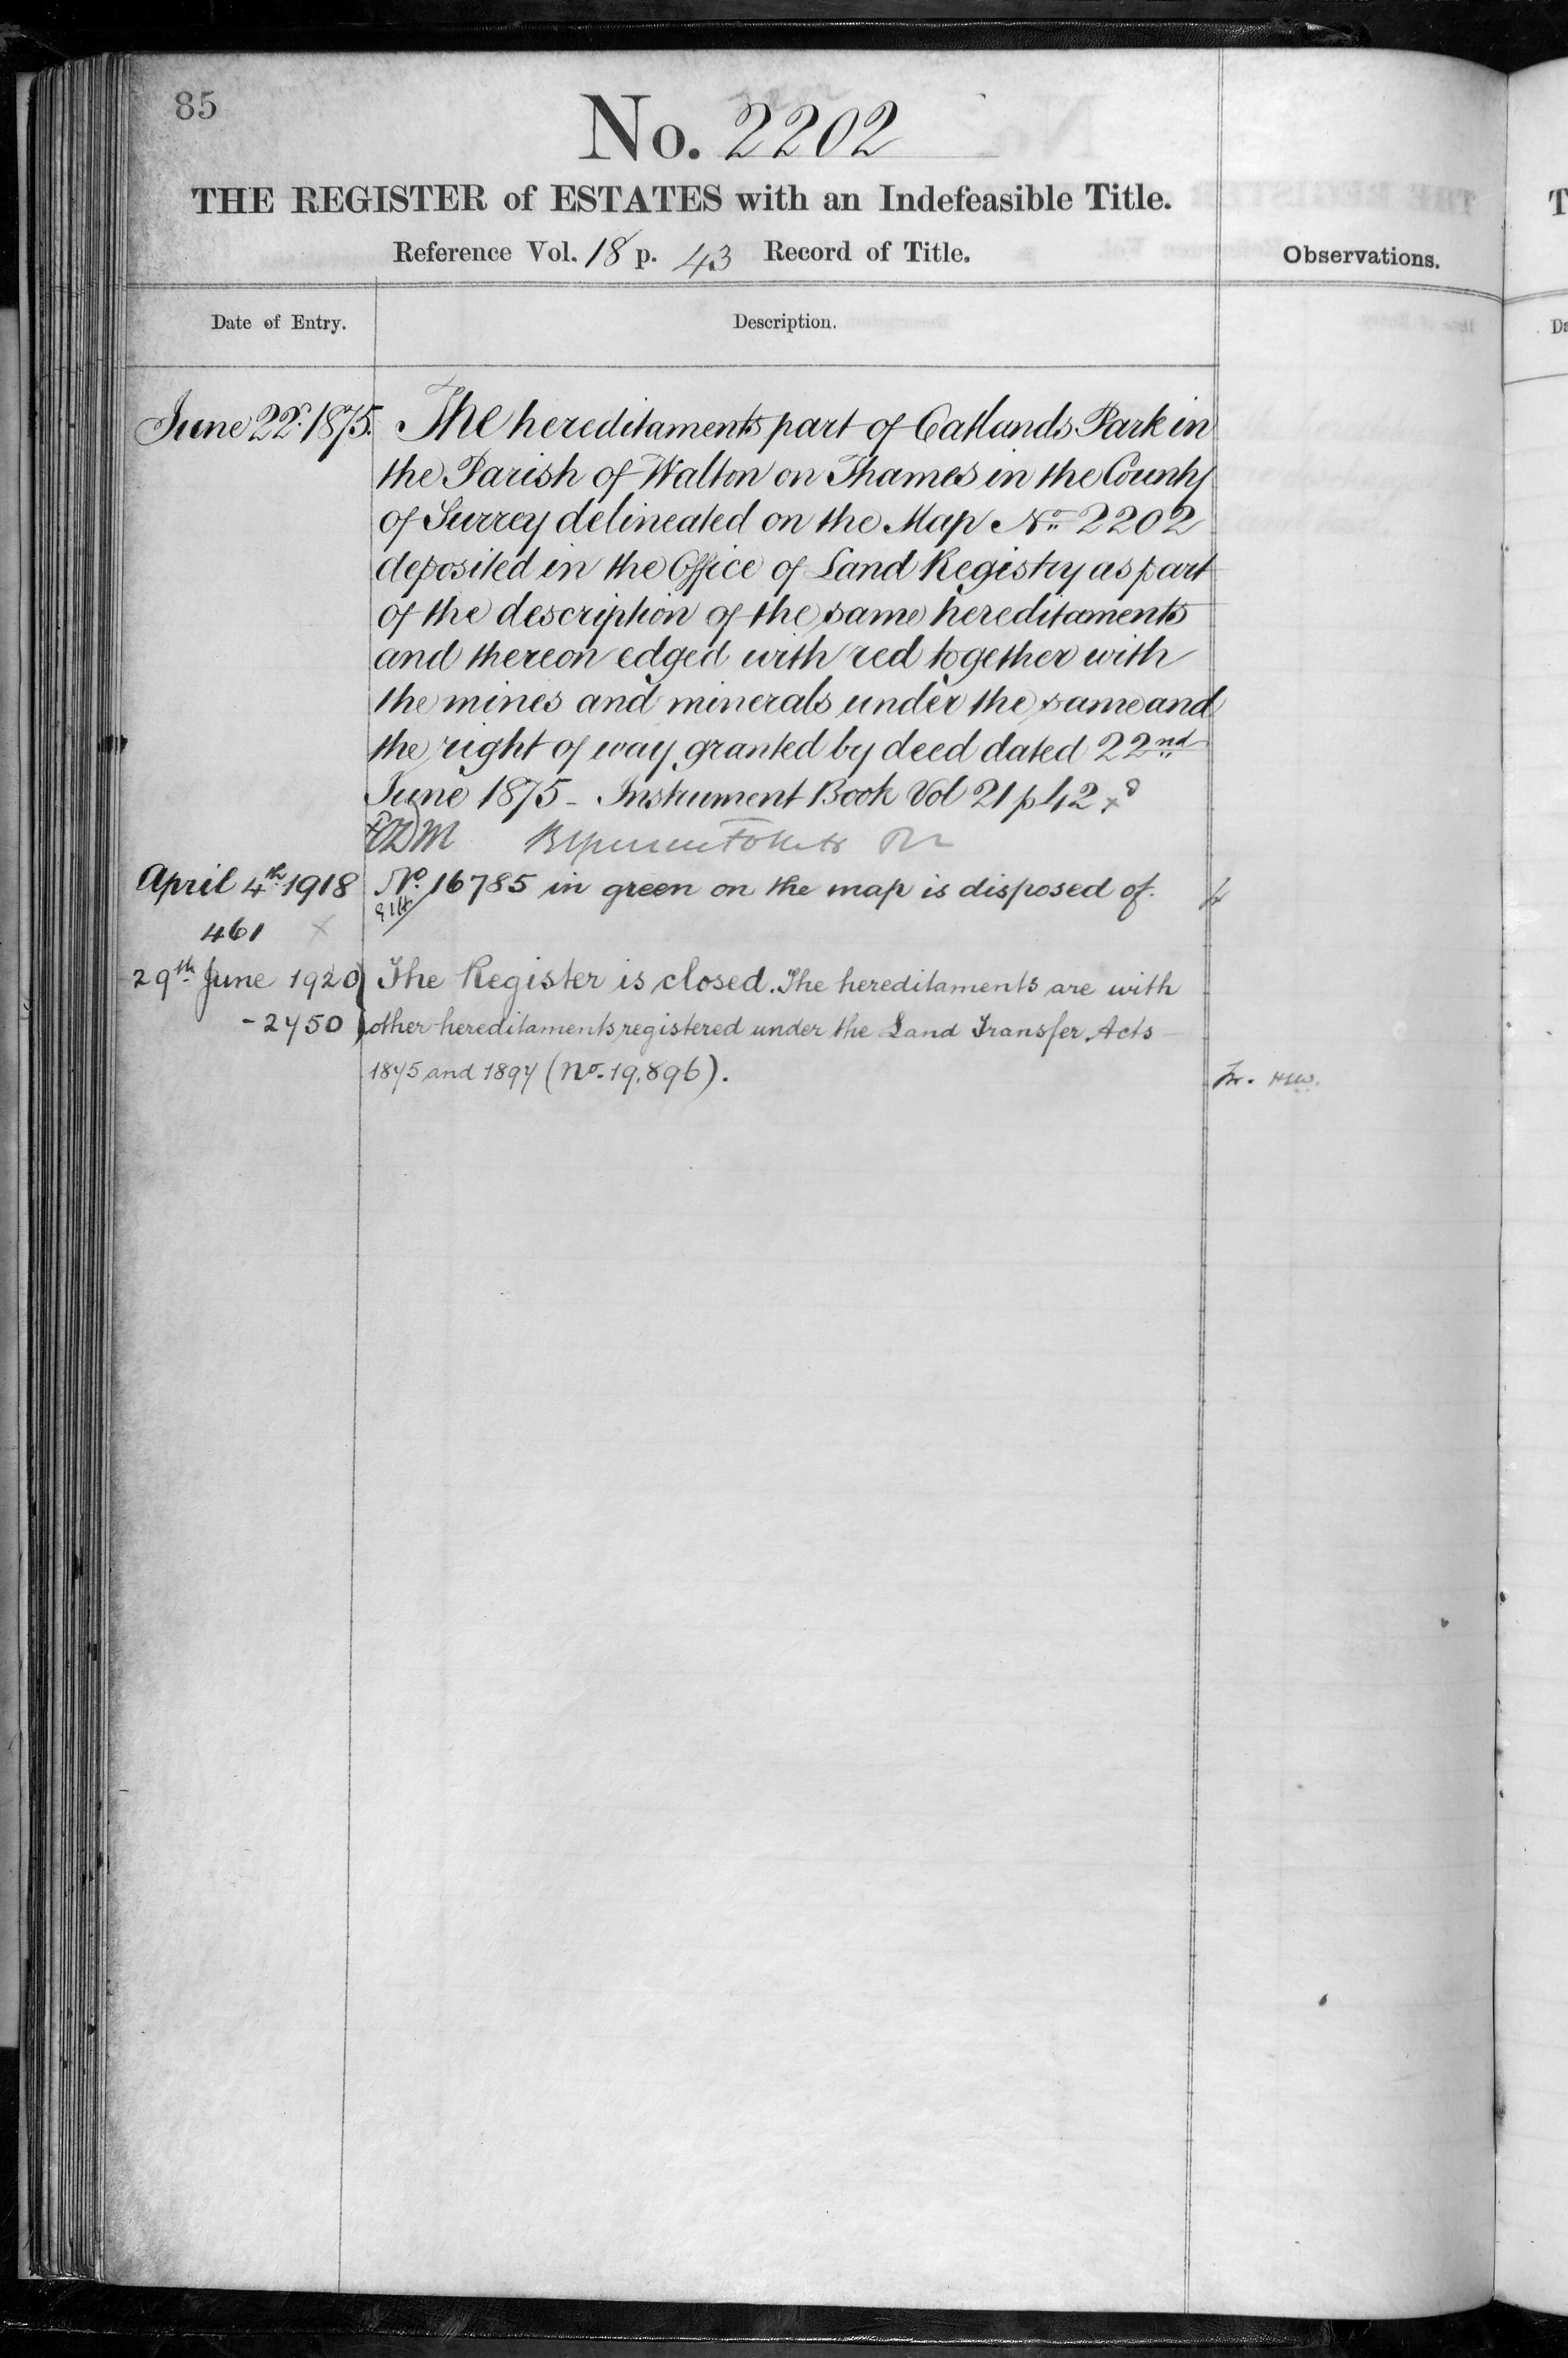 85
No. 2202
THE REGISTER of ESTATES with an Indefeasible Title.
Reference Vol. 18 p. 43 Record of Title.
Observations.
Date of Entry.
Description.
June 22d. 1875. The hereditaments part of Oatlands Park in
the Parish of Walton on Thames in the County
of Surrey delineated on the Map No. 2202
deposited in the Office of Land Registry as part
of the description of the same hereditaments
and thereon edged with red together with
the mines and minerals under the same and
the right of way granted by deed dated 22nd
June 1875 - Instrument Book Vol 21 p 42
April 4th 1918 No. 16785 in green on the map is disposed of.
461
29th June 1920 The Register is closed. The hereditaments are with
-2450 other hereditaments registered under the Land Transfer Acts
1875 and 1897 (No. 19,896).